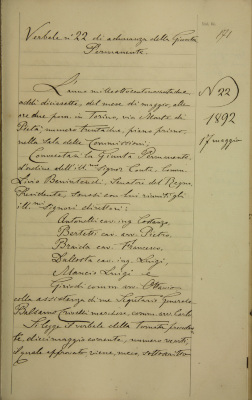 171
Verbale n° 22 di adunanza della Giunta
Permanente.
L'anno milleottocentonovantadue,
addì diciasette, del mese di maggio, alle
ore due pom. in Torino, via Monte di
Pietà, numero trentadue, piano primo,
nella Sala delle Commissioni.
Convocata la Giunta Permanente
d'ordine dell'ill.mo Signor Conte, Comm.
Livio Benintendi, Senatore del Regno,
Presidente, sonosi con lui riuniti gli
ill.mi Signori direttori:
Antonelli cav. ing. Costanzo
Bertetti cav. avv. Pietro
Braida cav. Francesco
Dallosta cav. ing. Luigi,
Luigi e
comm. avv. Ottavio
colla assistenza di me Segretario Generale
Balsamo Crivelli marchese, comm. avv. Carlo.
Si legge il verbale della tornata preceden-
te, dieci maggio corrente, numero ventuno,
il quale approvato, viene, meco, sottoscritto
N 22
1892
17 maggio